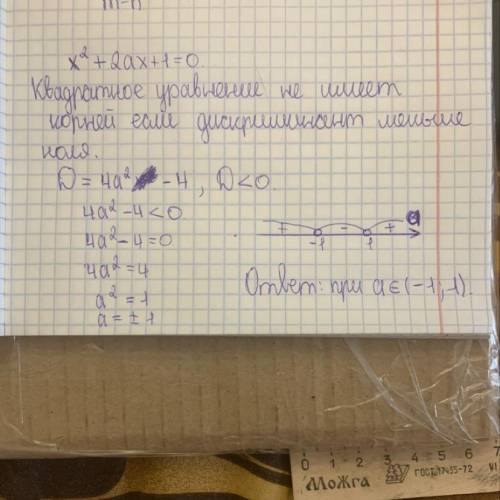 m-n
x² + 2ax + 1 = 0
Квадратное уравнение не имеет
корней если дискриминант меньше
ноля.
D = 4a² - 4, D < 0.
4a² - 4 < 0
4a² - 4 = 0
4a² = 4
a² = 1
a = ± 1
+ - + a
-1 1
Ответ: при a ∈ (-1; 1).
0 1 2 3 4 5 6 7
МоЖга ГОСТ 17435-72 VI